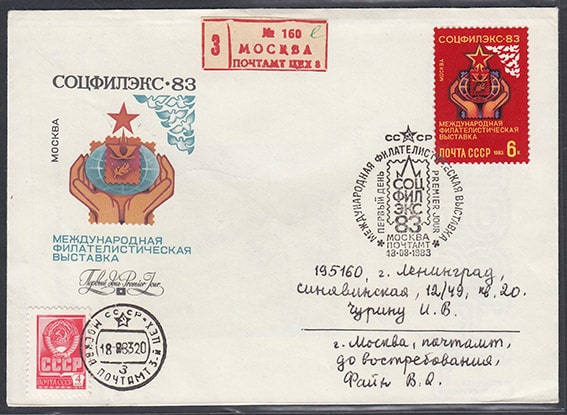 З
№ 160
МОСКВА
ПОЧТАМТ ЦЕХ 8
СОЦФИЛЭКС·83
МОСКВА
МЕЖДУНАРОДНАЯ
ФИЛАТЕЛИСТИЧЕСКАЯ
ВЫСТАВКА
Первый день Premier Jour
СОЦФИЛЭКС·83
МОСКВА
МЕЖДУНАРОДНАЯ
ФИЛАТЕЛИСТИЧЕСКАЯ
ВЫСТАВКА
ПОЧТА СССР 1983 6к
СССР
МЕЖДУНАРОДНАЯ ФИЛАТЕЛИСТИЧЕСКАЯ ВЫСТАВКА
ПЕРВЫЙ ДЕНЬ
PREMIER JOUR
СОЦ
ФИЛ
ЭКС
83
МОСКВА
ПОЧТАМТ
18-08-1983
195160, г. Ленинград,
Синявинская, 12/49, кв. 20.
Чурину И. В.
г. Москва, почтамт,
до востребования,
Файн В.
СССР
ПОЧТА СССР
4
СССР
МОСКВА
ПОЧТАМТ
3